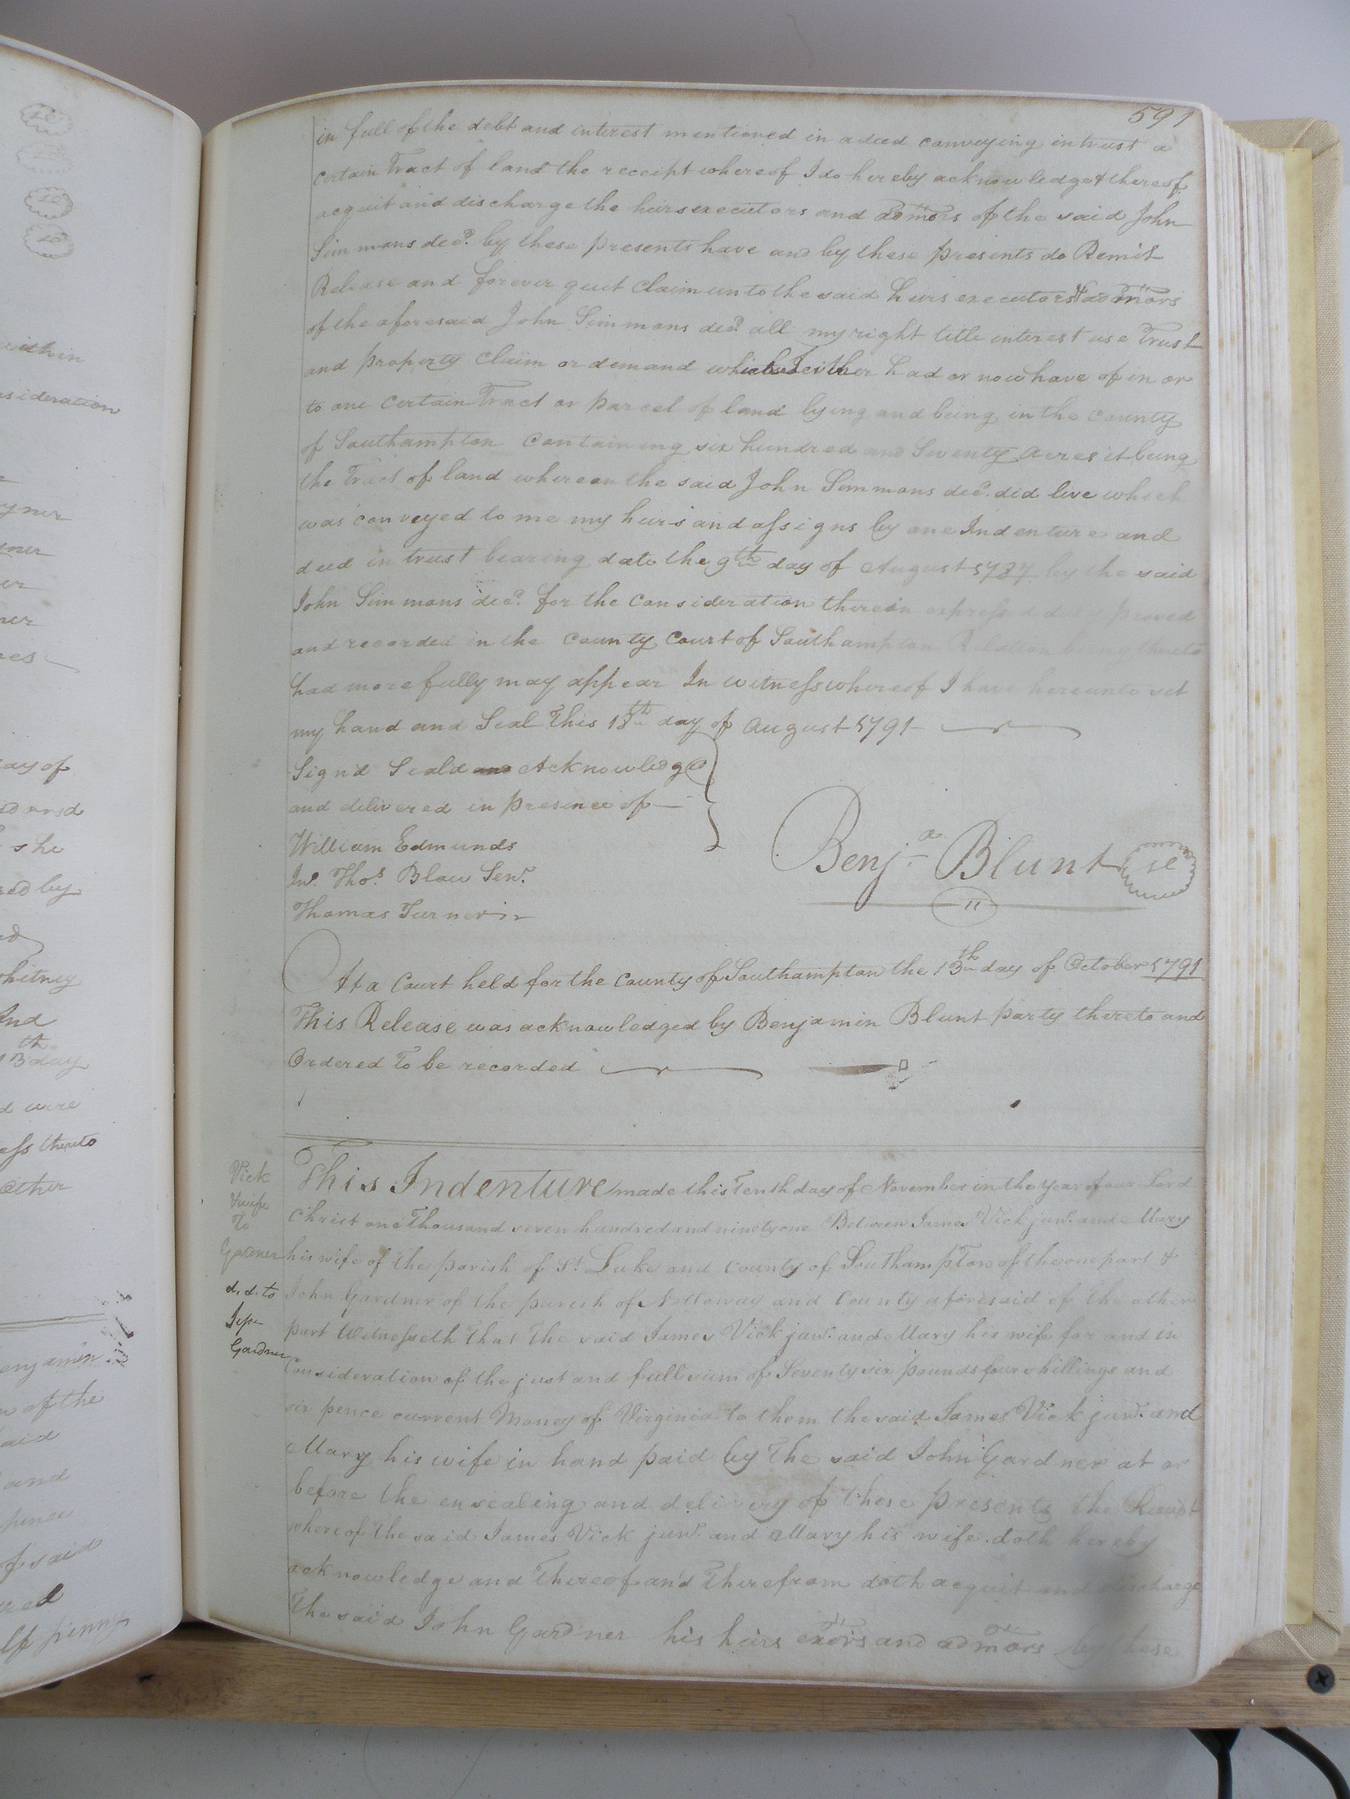 591
in full of the debt and interest mentioned in a deed conveying in trust a
certain Tract of land the receipt whereof I do hereby acknowledge & thereof
acquit and discharge the heirs executors and admors of the said John
Simmons decd. by these presents have and by these presents do Remit
Release and forever quit Claim unto the said heirs executors & admors
of the aforesaid John Simmons decd all my right title interest use Trust
and property Claim or demand which I either had or now have of in or
to one certain Tract or parcel of land lying and being in the county
of Southampton Containing six hundred and Seventy Acres it being
the Tract of land whereon the said John Simmons decd. did live which
was conveyed to me my heirs and assigns by one Indenture and
deed in trust bearing date the 9th day of August 1787 by the said
John Simmons decd. for the consideration therein express'd duly proved
and recorded in the County Court of Southampton Relation being thereto
had more fully may appear In witness whereof I have hereunto set
my hand and Seal This 18th day of August 1791
Sign'd Seald and Acknowledge
and delivered in presence of
William Edmunds
Jno. Thos. Blow Senr.
Thomas Turner
Benja. Blunt
At a Court held for the County of Southampton the 13th day of October 1791
This Release was acknowledged by Benjamin Blunt party thereto and
Ordered To be recorded
Vick
& wife
To
Gardner
d. d. to
Jesse
Gardner
This Indenture made this Tenth day of November in the year of our Lord
Christ one Thousand seven hundred and ninety one Between James Vick junr. and Mary
his wife of the parish of St. Luke and County of Southampton of the one part &
John Gardner of the parish of Nottoway and County aforesaid of the other
part Witnesseth that the said James Vick junr. and Mary his wife for and in
Consideration of the just and full sum of Seventy six pounds four shillings and
six pence current Money of Virginia to them the said James Vick junr. and
Mary his wife in hand paid by The said John Gardner at or
before the ensealing and delivery of these presents the Receipt
whereof the said James Vick junr. and Mary his wife doth hereby
acknowledge and Thereof and Therefrom doth acquit and discharge
The said John Gardner his heirs exors and admors by these